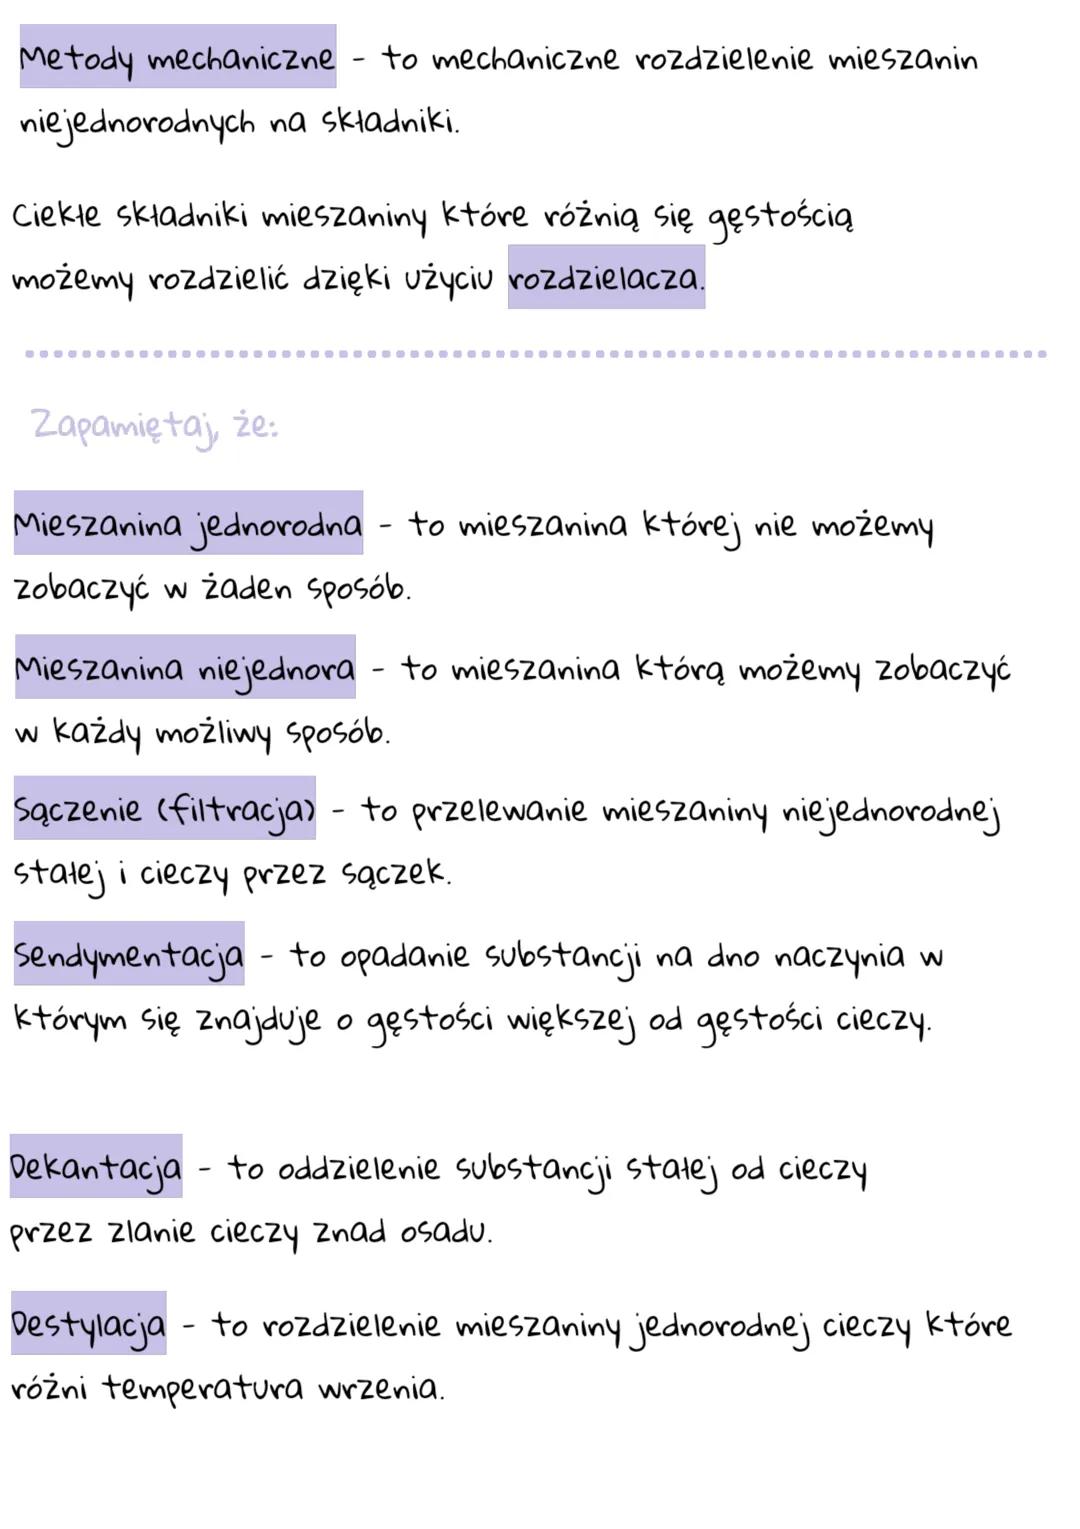 Metody mechaniczne - to mechaniczne rozdzielenie mieszanin
niejednorodnych na składniki.
Ciekłe składniki mieszaniny które różnią się gęstością
możemy rozdzielić dzięki użyciu rozdzielacza.
Zapamiętaj, że:
Mieszanina jednorodna - to mieszanina której nie możemy
zobaczyć w żaden sposób.
Mieszanina niejednora - to mieszanina którą możemy zobaczyć
w każdy możliwy sposób.
Sączenie (filtracja) - to przelewanie mieszaniny niejednorodnej
stałej i cieczy przez sączek.
Sendymentacja - to opadanie substancji na dno naczynia w
którym się znajduje o gęstości większej od gęstości cieczy.
Dekantacja - to oddzielenie substancji stałej od cieczy
przez zlanie cieczy znad osadu.
Destylacja - to rozdzielenie mieszaniny jednorodnej cieczy które
różni temperatura wrzenia.